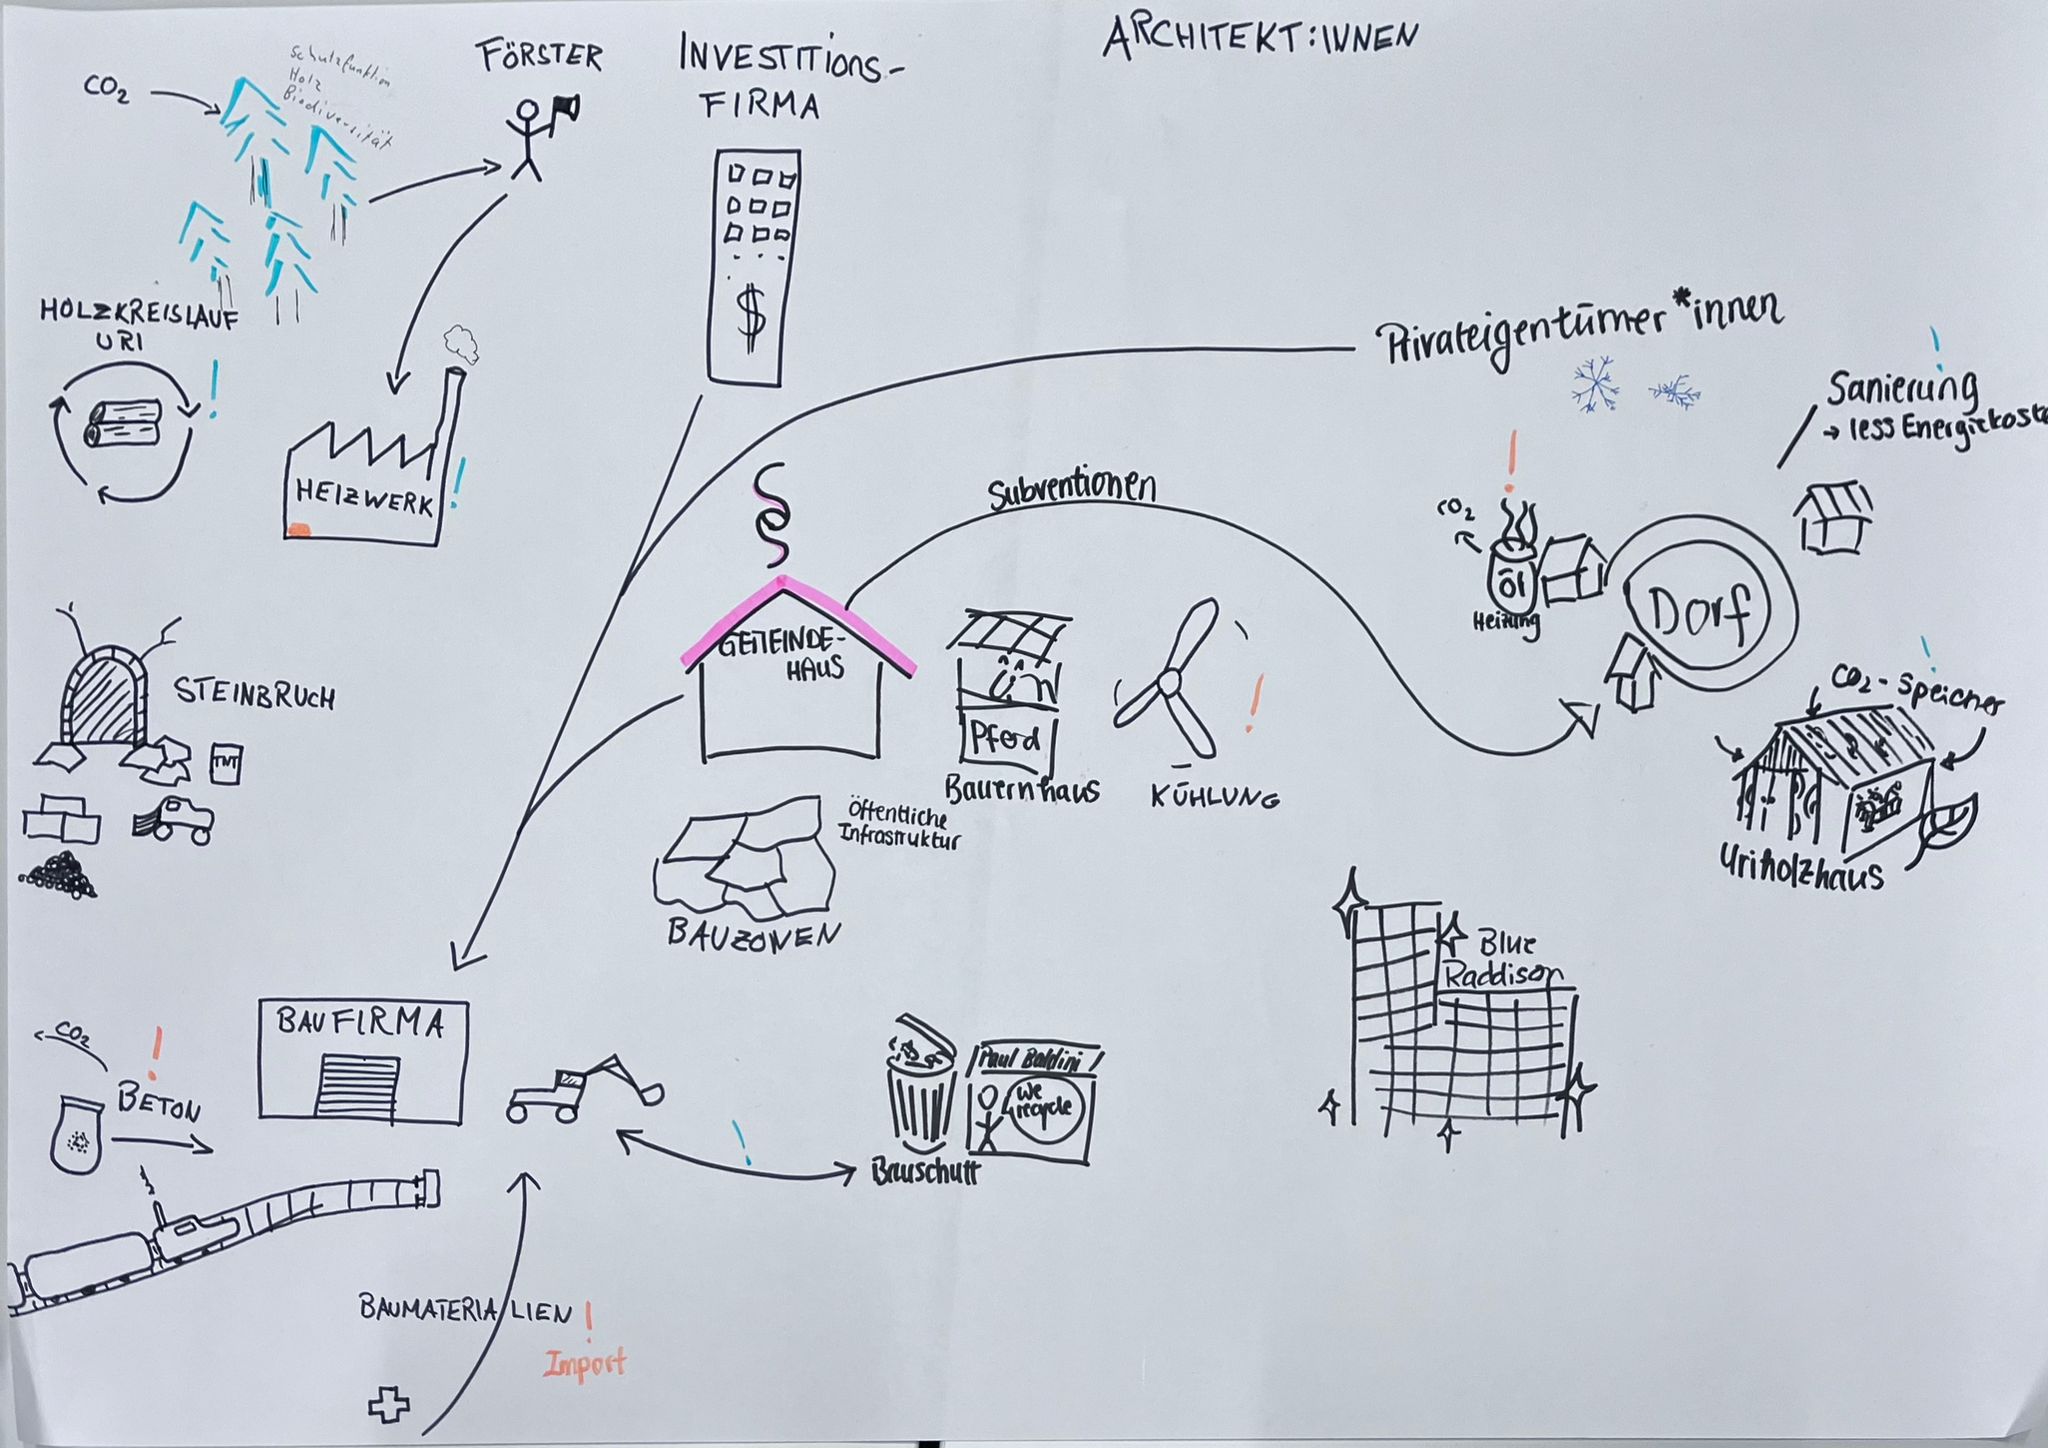 ARCHITEKT:INNEN
FÖRSTER
INVESTITIONS-
FIRMA
CO₂
Schutzfunktion
Holz
Biodiversität
HOLZKREISLAUF
URI
!
HEIZWERK
!
$
Privateigentümer*innen
!
Sanierung
→ less Energiekoste
Subventionen
!
CO₂
Öl
Heizung
Dorf
§
GEMEINDE-
HAUS
Pferd
Bauernhaus
!
KÜHLUNG
!
CO₂-Speicher
Uriholzhaus
STEINBRUCH
TNT
Öffentliche
Infrastruktur
BAUZONEN
Blue
Raddison
BAUFIRMA
CO₂
!
BETON
!
Paul Baldini
We
recycle
Bauschutt
BAUMATERIALIEN !
Import